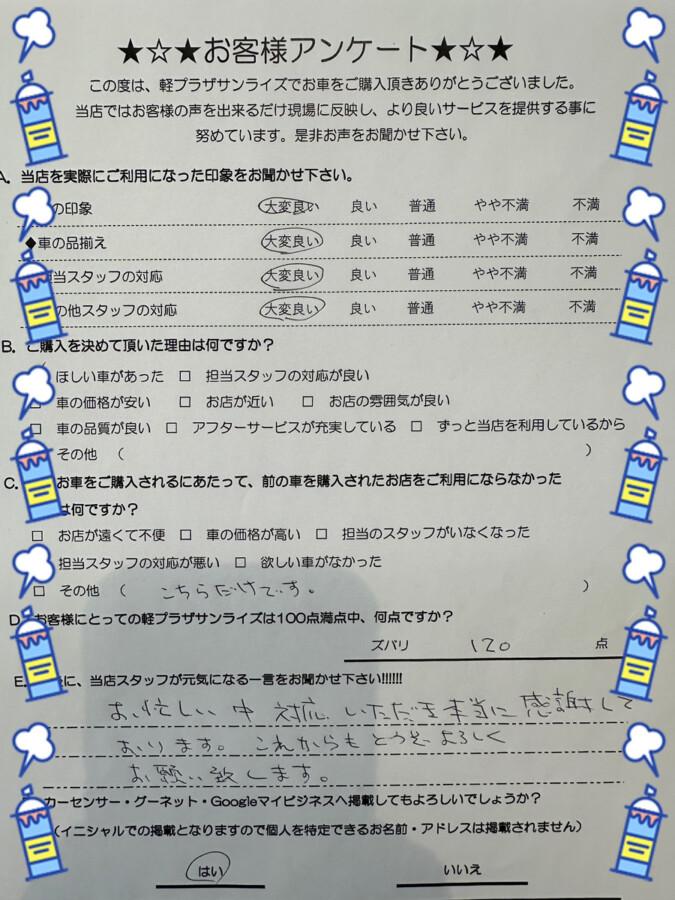 ★☆★お客様アンケート★☆★
この度は、軽プラザサンライズでお車をご購入頂きありがとうございました。
当店ではお客様の声を出来るだけ現場に反映し、より良いサービスを提供する事に
努めています。是非お声をお聞かせ下さい。
A. 当店を実際にご利用になった印象をお聞かせ下さい。
の印象 大変良い 良い 普通 やや不満 不満
◆車の品揃え 大変良い 良い 普通 やや不満 不満
当スタッフの対応 大変良い 良い 普通 やや不満 不満
の他スタッフの対応 大変良い 良い 普通 やや不満 不満
B. ご購入を決めて頂いた理由は何ですか？
ほしい車があった □ 担当スタッフの対応が良い
□ 車の価格が安い □ お店が近い □ お店の雰囲気が良い
□ 車の品質が良い □ アフターサービスが充実している □ ずっと当店を利用しているから
その他 （ ）
C. お車をご購入されるにあたって、前の車を購入されたお店をご利用にならなかった
は何ですか？
□ お店が遠くて不便 □ 車の価格が高い □ 担当のスタッフがいなくなった
担当スタッフの対応が悪い □ 欲しい車がなかった
□ その他 （ こちらだけです。 ）
D. お客様にとっての軽プラザサンライズは100点満点中、何点ですか？
ズバリ 120 点
E. に、当店スタッフが元気になる一言をお聞かせ下さい!!!!!!
お忙しい中 対応 いただき本当に感謝して
おります。これからもどうぞよろしく
お願い致します。
カーセンサー・グーネット・Googleマイビジネスへ掲載してもよろしいでしょうか？
（イニシャルでの掲載となりますので個人を特定できるお名前・アドレスは掲載されません）
はい いいえ